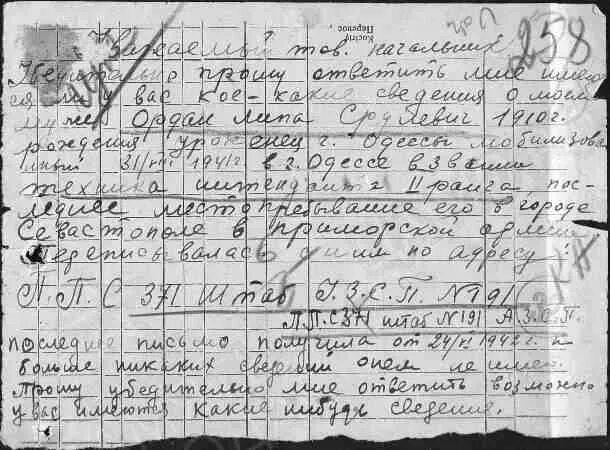 258
Костів
Перенос
Уважаемый тов. начальник
Убедительно прошу ответить мне имею
ся ли у вас кое-какие сведения о моем
муже Ордан Липа Срулевич 1910г.
рождения уроженец г. Одессы мобилизова
нный 1941г в г. Одессе в звании
техника интенданта II ранга, пос-
леднее местопребывание его в городе
Севастополе в приморской армии
Переписывалась с ним по адресу:
П.П.С 371 Штаб З.С.П. №191
П.П.С 371 штаб №191 А.З.С.П.
последнее письмо получила от 24/VI 1942г. и
больше никаких сведений о нем не имею.
Прошу убедительно мне ответить возможно
у вас имеются какие нибудь сведения.